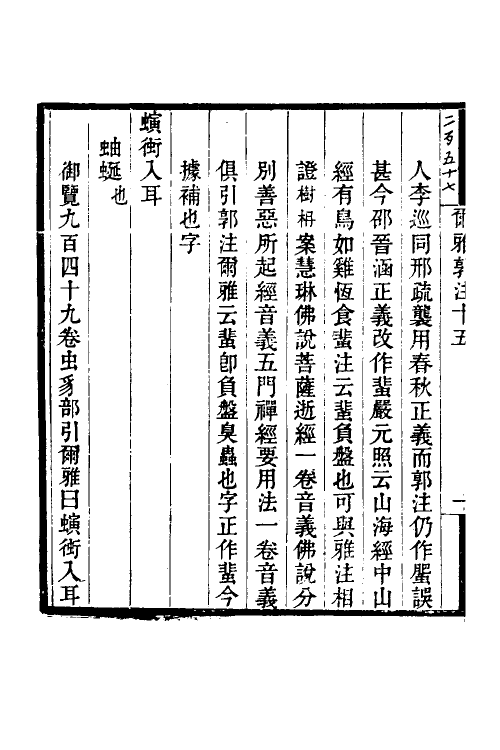 二万五十七 爾雅郭注十五 一
人李巡同邢疏襲用春秋正義而郭注仍作蜚誤
甚今邵晉涵正義改作蜚嚴元照云山海經中山
經有鳥如雞恆食蜚注云蜚負盤也可與雅注相
證樹栟案慧琳佛說菩薩逝經一卷音義佛說分
別善惡所起經音義五門禪經要用法一卷音義
俱引郭注爾雅云蜚卽負盤臭蟲也字正作蜚今
據補也字
螾衝入耳
蚰蜒也
御覽九百四十九卷虫豸部引爾雅曰螾衝入耳